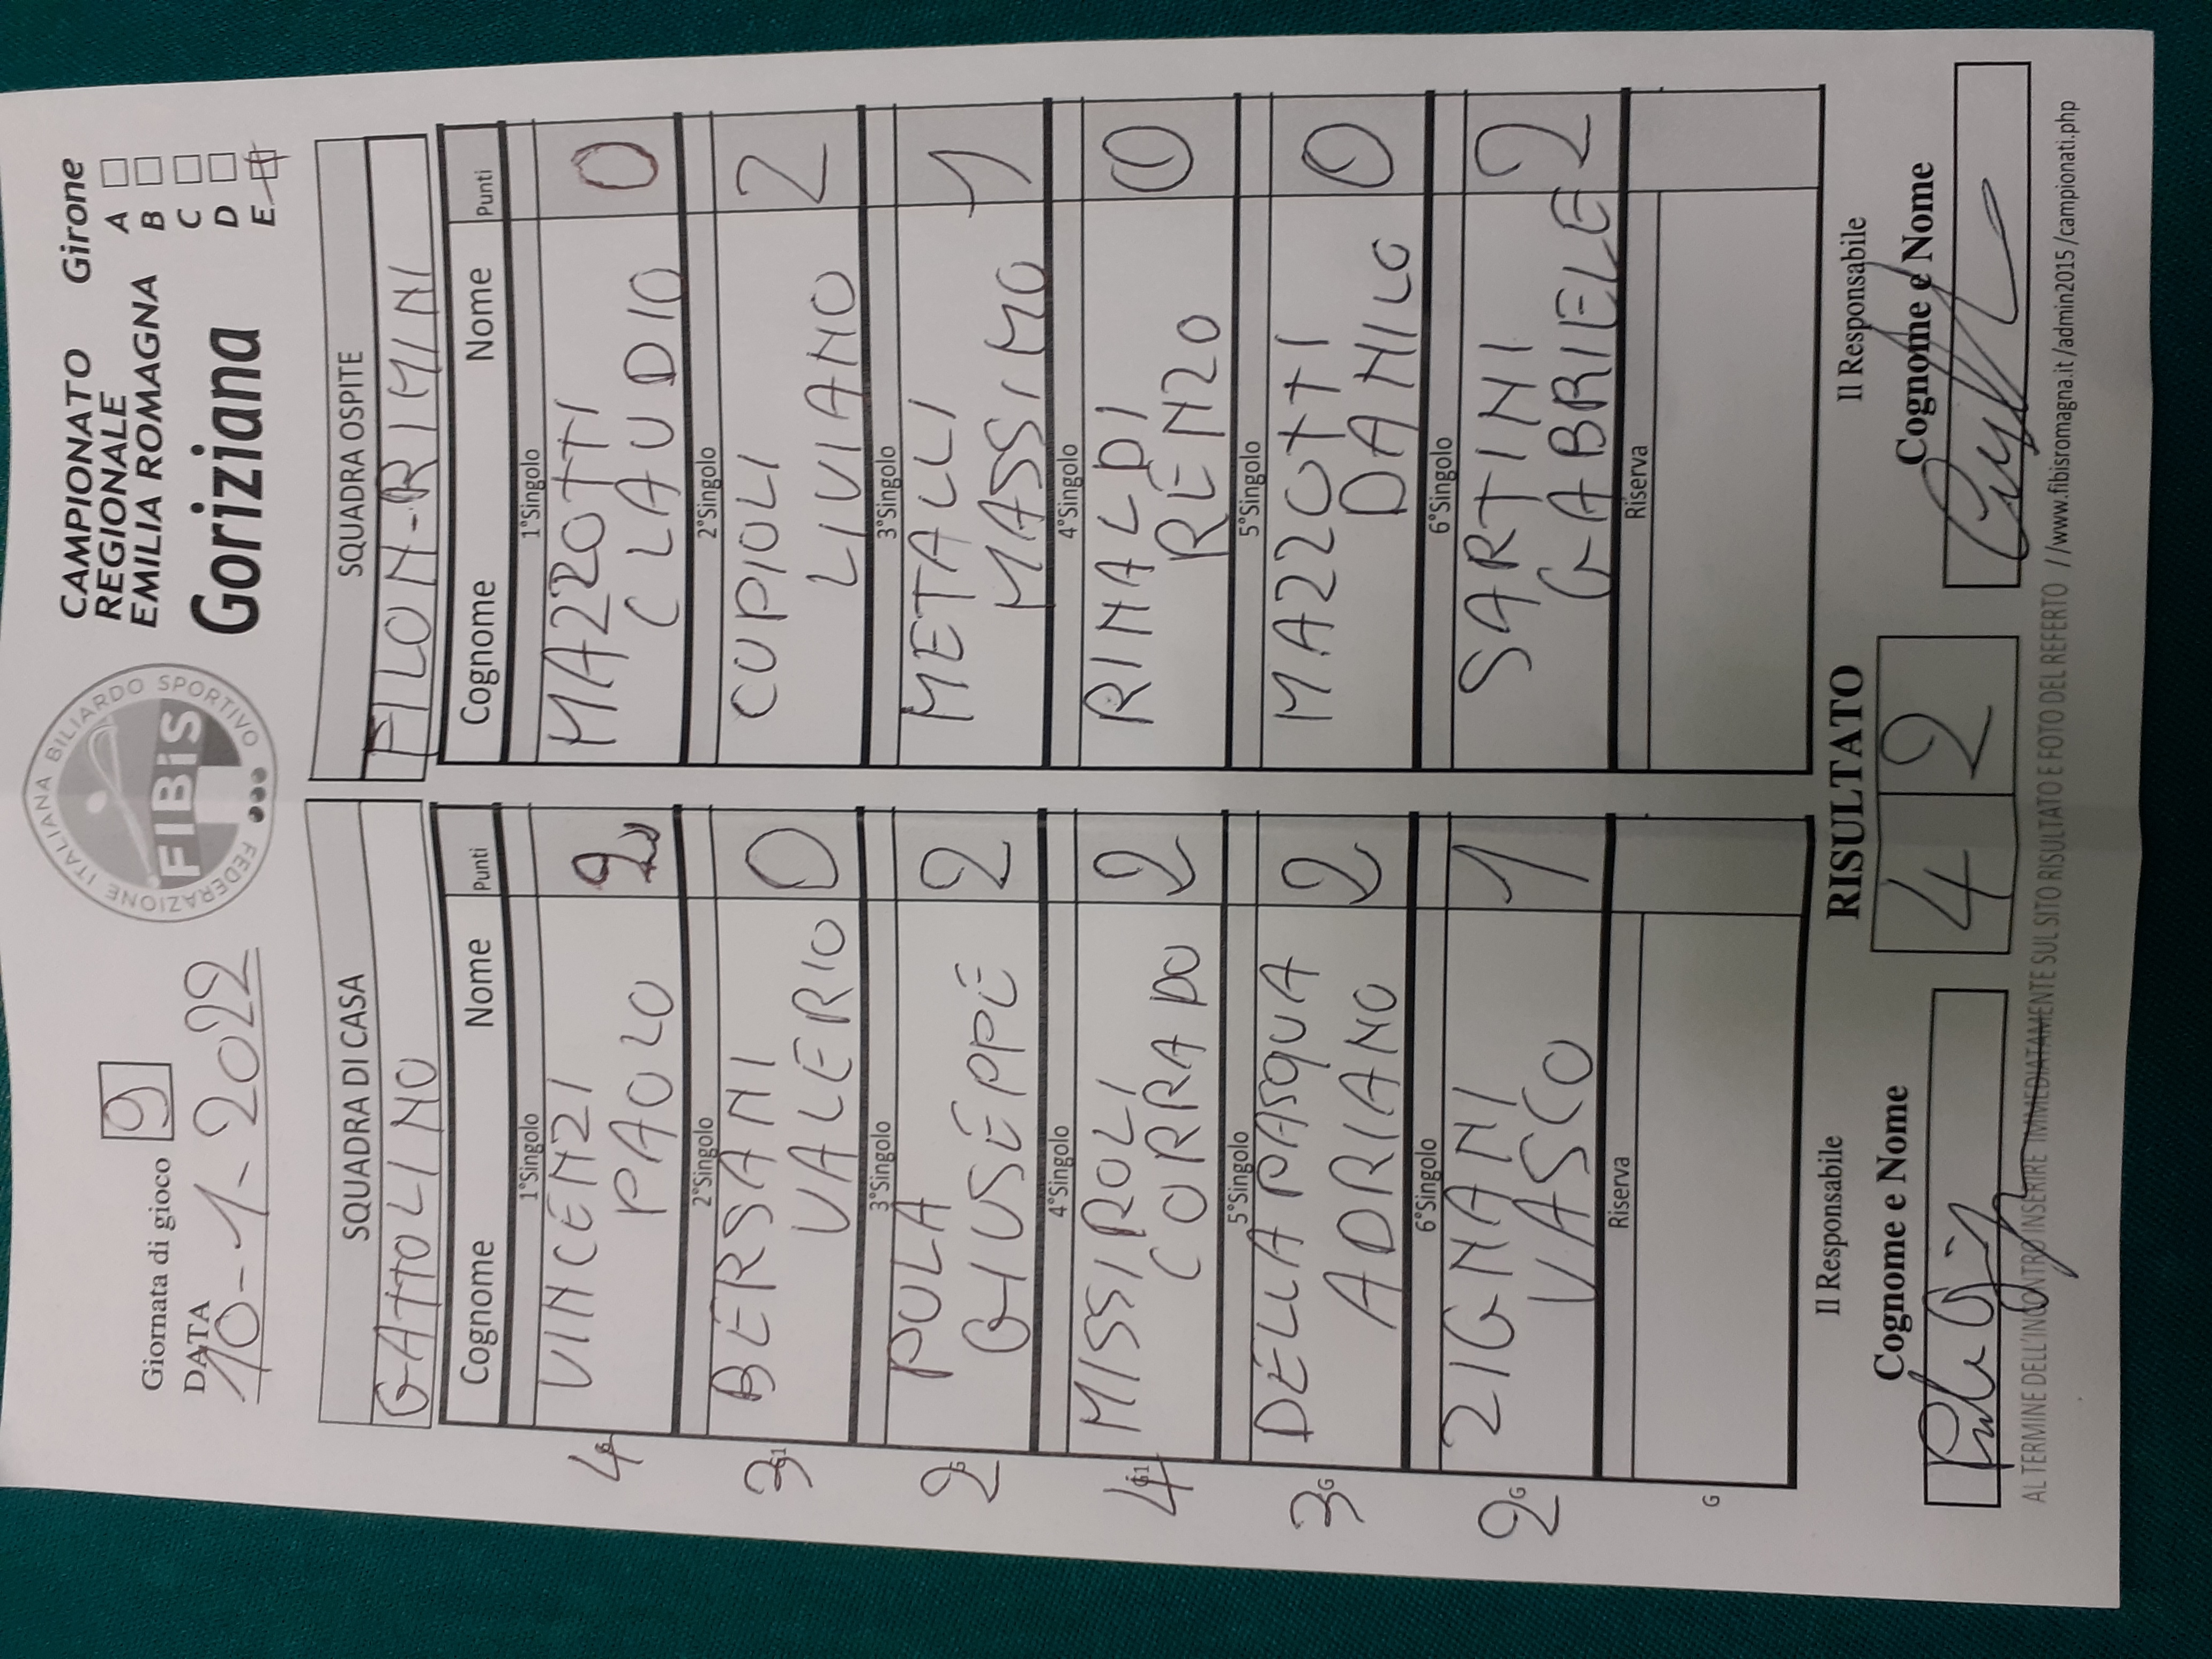 Giornata di gioco 9
DATA
10-1-2022
FEDERAZIONE ITALIANA BILIARDO SPORTIVO
FIBiS
CAMPIONATO
REGIONALE
EMILIA ROMAGNA
Goriziana
Girone
A
B
C
D
E
SQUADRA DI CASA
GATTOLINO
Cognome Nome Punti
1°Singolo
VINCENZI
PAOLO 2
4
2°Singolo
BERSANI
VALERIO 0
3
3°Singolo
PULA
GIUSEPPE 2
2
4°Singolo
MISSIROLI
CORRADO 2
4
5°Singolo
DELLAPASQUA
ADRIANO 2
3 G
6°Singolo
ZIGNANI
VASCO 1
2 G
Riserva
G
SQUADRA OSPITE
FILON-RIMINI
Cognome Nome Punti
1°Singolo
MAZZOTTI
CLAUDIO 0
2°Singolo
CUPIOLI
LIVIANO 2
3°Singolo
METALLI
MASSIMO 1
4°Singolo
RINALDI
RENZO 0
5°Singolo
MAZZOTTI
DANILO 0
6°Singolo
SARTINI
GABRIELE 2
Riserva
Il Responsabile
Cognome e Nome
RISULTATO
4 2
Il Responsabile
Cognome e Nome
AL TERMINE DELL'INCONTRO INSERIRE IMMEDIATAMENTE SUL SITO RISULTATO E FOTO DEL REFERTO //www.fibisromagna.it/admin2015/campionati.php